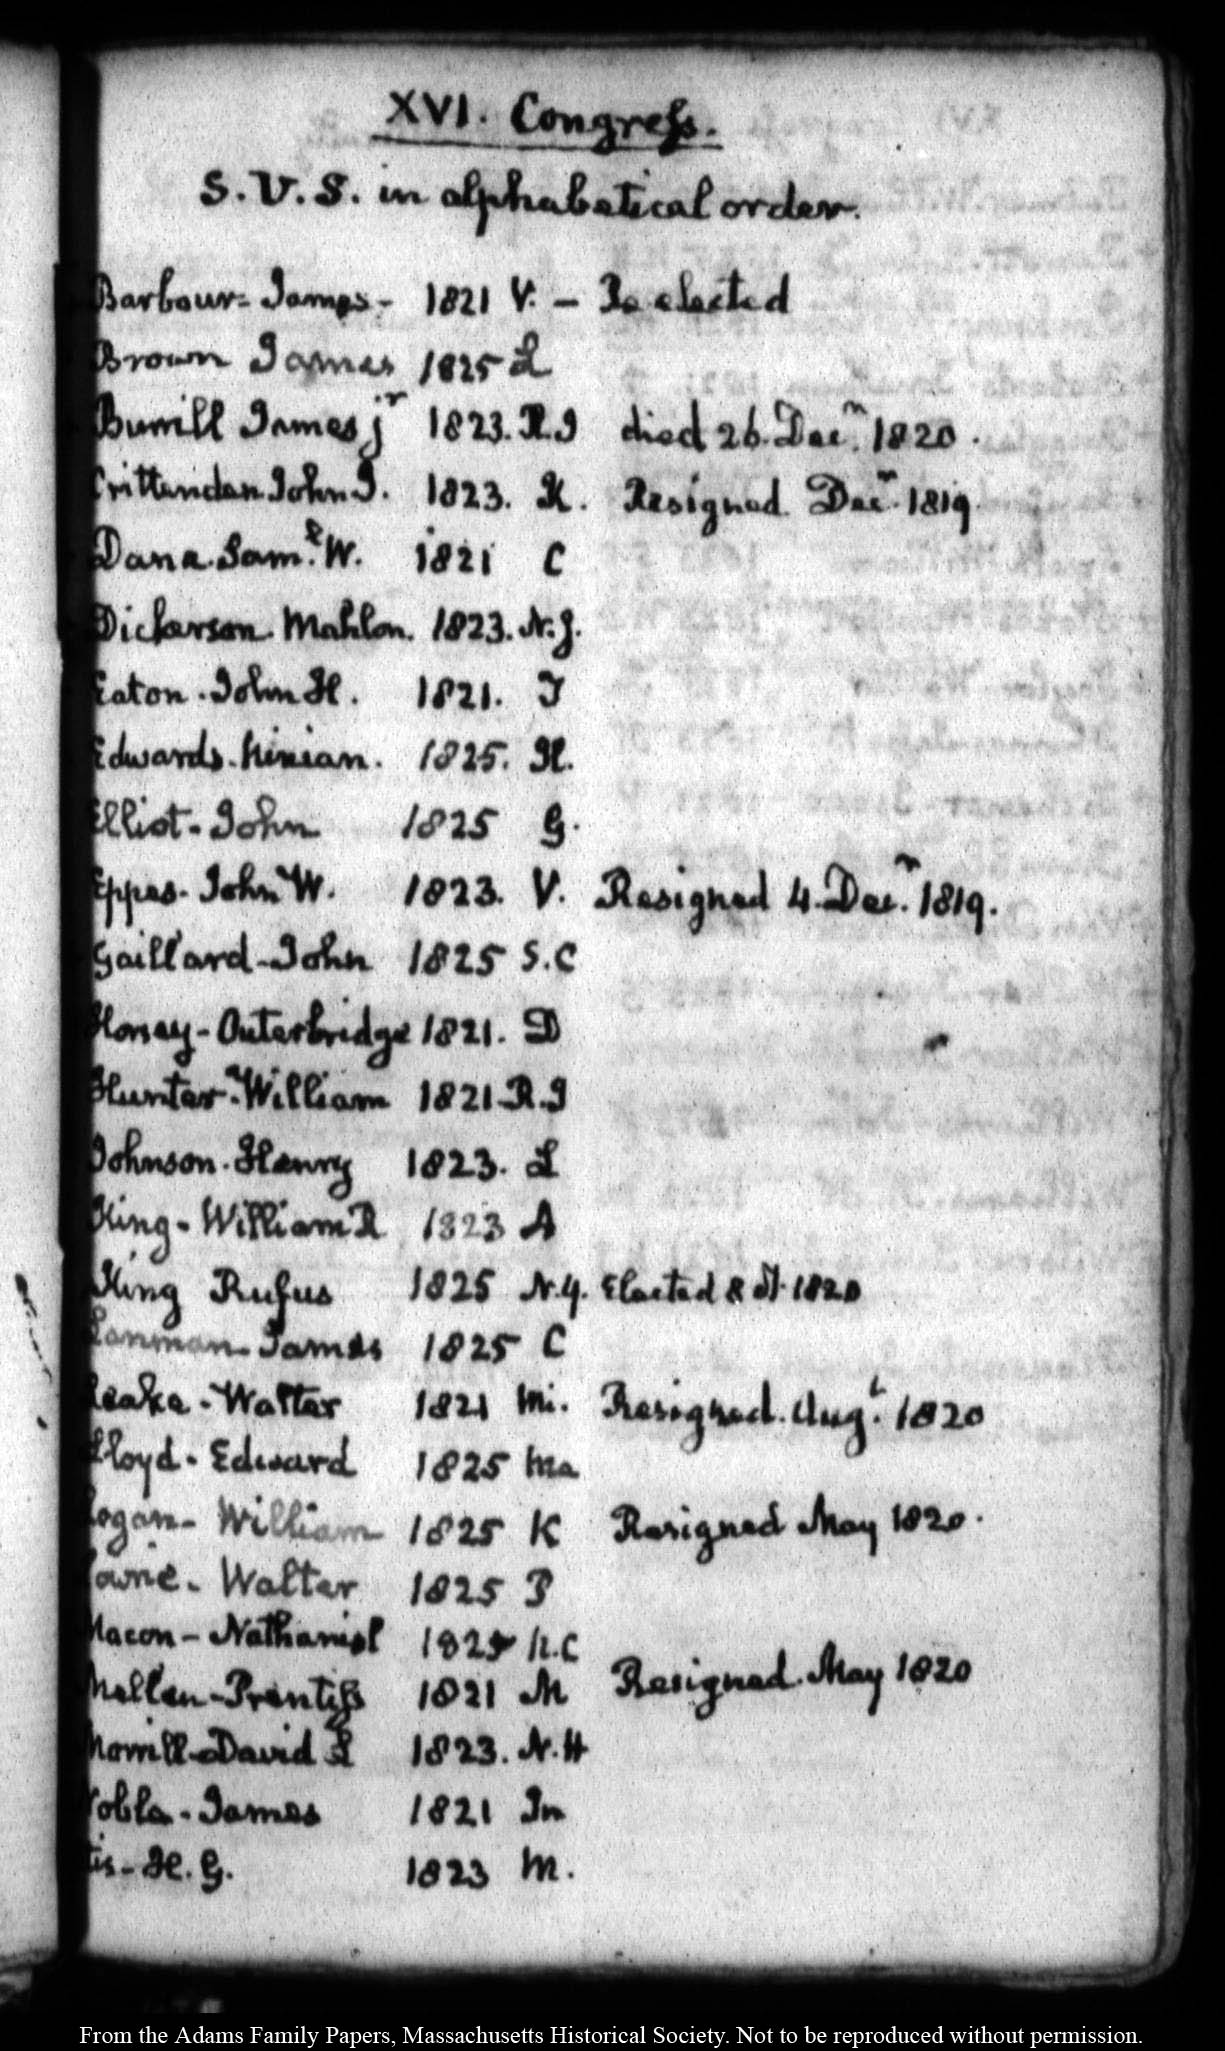 XVI. Congress.
S.V.S. in alphabetical order.
Barbour- James- 1821 V. – Re elected
Brown James 1825 L
Burrill James jr 1823. R.I died 26. Decr. 1820.
Crittenden John J. 1823. K. Resigned Decr. 1819.
Dana. Saml. W. 1821 C
Dickerson. Mahlon. 1823. N.J.
Eaton. John H. 1821. T
Edwards. Ninian. 1825. Il.
Elliot- John 1825 G.
Eppes- John W. 1823. V. Resigned 4. Decr. 1819.
Gaillard- John 1825 S.C
Horsey- Outerbridge 1821. D
Hunter- William 1821 R.I
Johnson. Henry 1823. L
King- William R 1823 A
King Rufus 1825 N.Y. Elected 8 1820
Lanman- James 1825 C
Leake- Walter 1821 Mi. Resigned. Augt. 1820
Lloyd- Edward 1825 Ma
Logan- William 1825 K Resigned May 1820.
Lowrie- Walter 1825 P
Macon- Nathaniel 1825 N.C
Mellen- Prentiss 1821 M Resigned. May 1820
Morrill- David L 1823. N.H
Noble- James 1821 In
tis- H. G. 1823 M.
From the Adams Family Papers, Massachusetts Historical Society. Not to be reproduced without permission.